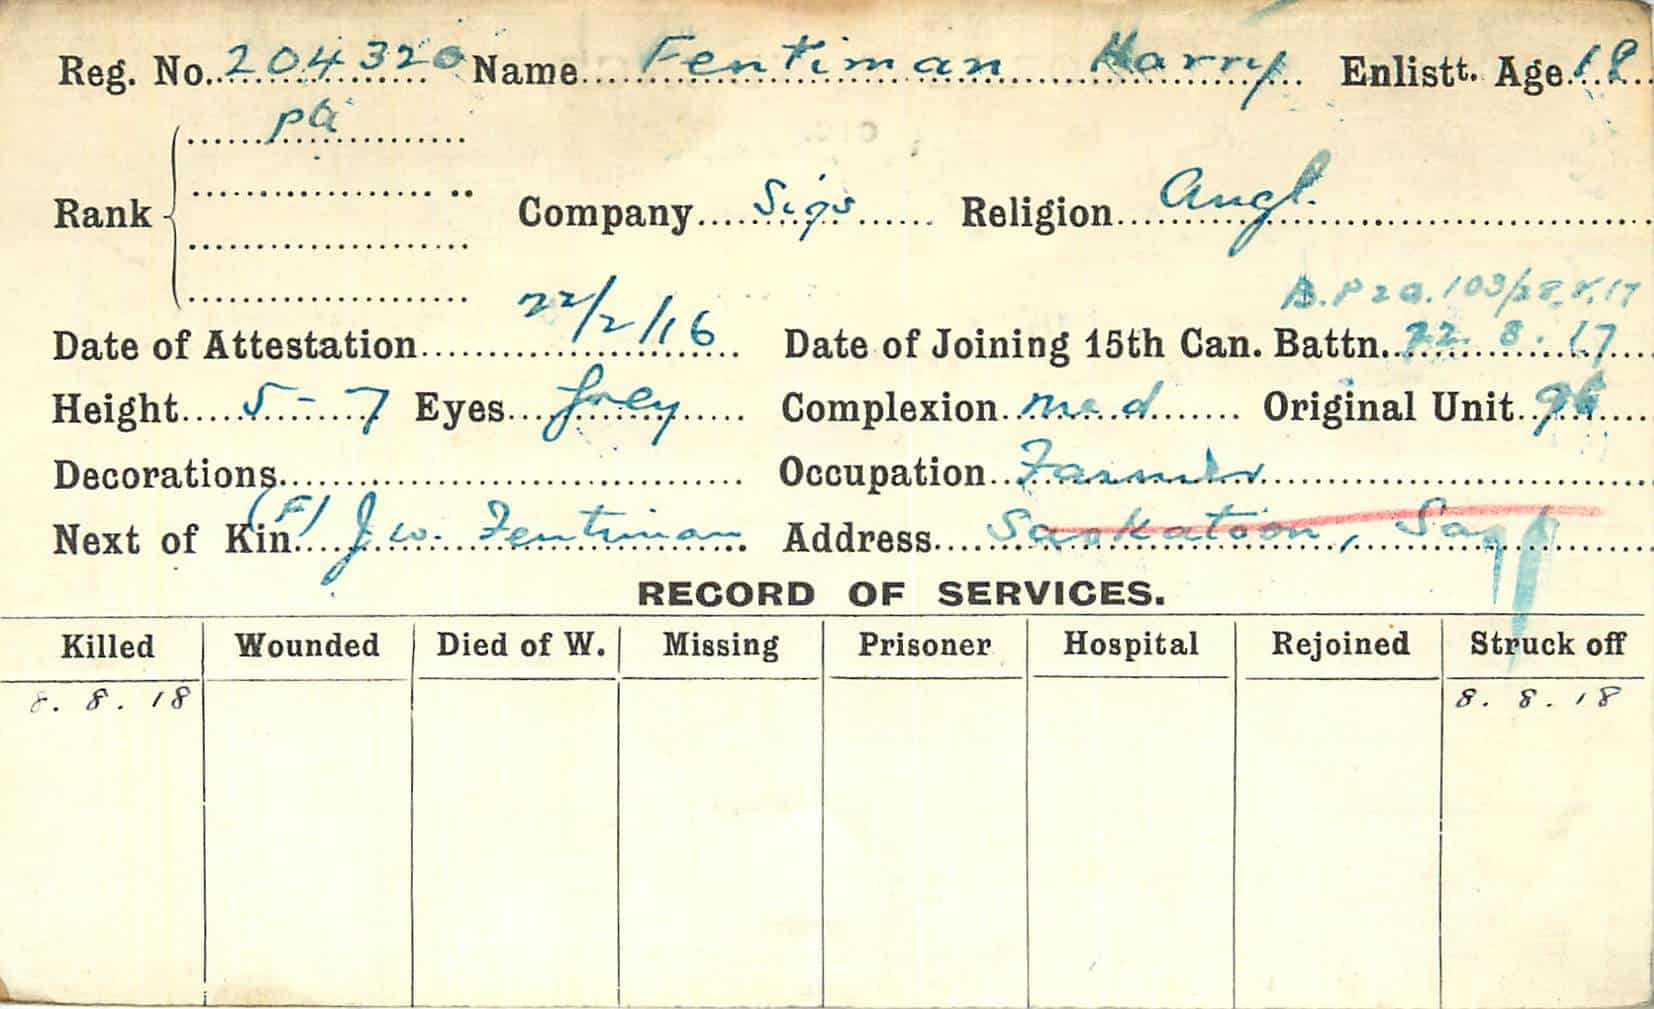 Reg. No. 204320 Name Fentiman Harry Enlistt. Age 18
Pte
Rank
Company Sigs Religion Angl.
B.P 2 O. 103/28.8.17
Date of Attestation 22/2/16 Date of Joining 15th Can. Battn. 22.8.17
Height 5-7 Eyes Grey Complexion Med Original Unit 96
Decorations Occupation Farmer
Next of Kin (F) J.W. Fentiman Address Saskatoon, Sask
RECORD OF SERVICES.
Killed Wounded Died of W. Missing Prisoner Hospital Rejoined Struck off
8.8.18 8.8.18